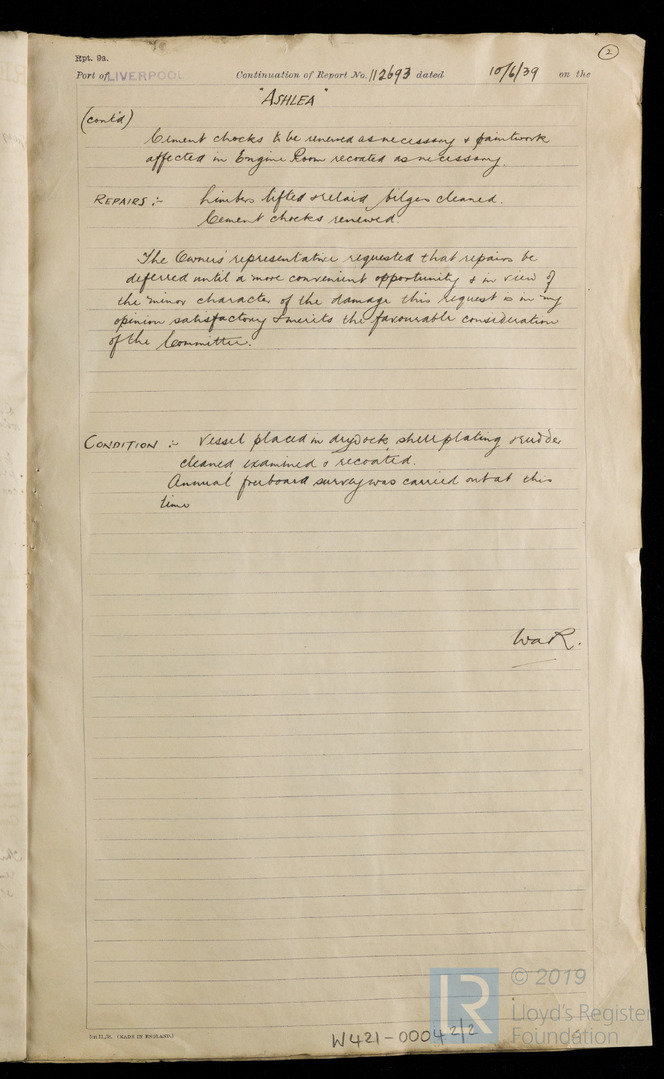 2
Rpt. 9a.
Port of LIVERPOOL Continuation of Report No. 112693 dated 10/6/39 on the
"ASHLEA"
(cont'd)
Cement chocks to be renewed as necessary & paintwork
affected in Engine Room recoated as necessary.
REPAIRS :- Limbers lifted & relaid bilges cleaned.
Cement chocks renewed.
The Owner's representative requested that repairs be
deferred until a more convenient opportunity & in view of
the minor character of the damage this request is in my
opinion satisfactory & merits the favourable consideration
of the Committee.
CONDITION :- Vessel placed in drydock shell plating & rudder
cleaned examined & recoated.
Annual freeboard survey was carried out at this
time
WaR.
(MADE IN ENGLAND.)
W421-0004 2/2
LR
© 2019
Lloyd's Register
Foundation